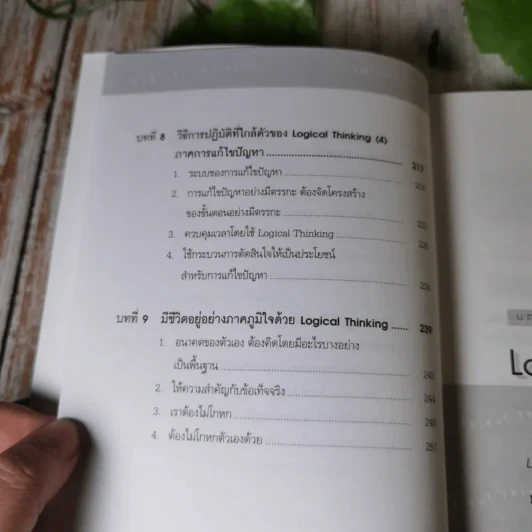 บทที่ 8 วิธีการปฏิบัติที่ใกล้ตัวของ Logical Thinking (4)
ภาคการแก้ไขปัญหา
1. ระบบของการแก้ไขปัญหา
2. การแก้ไขปัญหาอย่างมีตรรกะ ต้องจัดโครงสร้าง
ของขั้นตอนอย่างมีตรรกะ
3. ควบคุมเวลาโดยใช้ Logical Thinking
4. ใช้กระบวนการตัดสินใจให้เป็นประโยชน์
สำหรับการแก้ไขปัญหา
บทที่ 9 มีชีวิตอยู่อย่างภาคภูมิใจด้วย Logical Thinking ...... 239
1. อนาคตของตัวเอง ต้องคิดโดยมีอะไรบางอย่าง
เป็นพื้นฐาน
2. ให้ความสำคัญกับข้อเท็จจริง 244
3. เราต้องไม่โกหก 248
4. ต้องไม่โกหกตัวเองด้วย 251